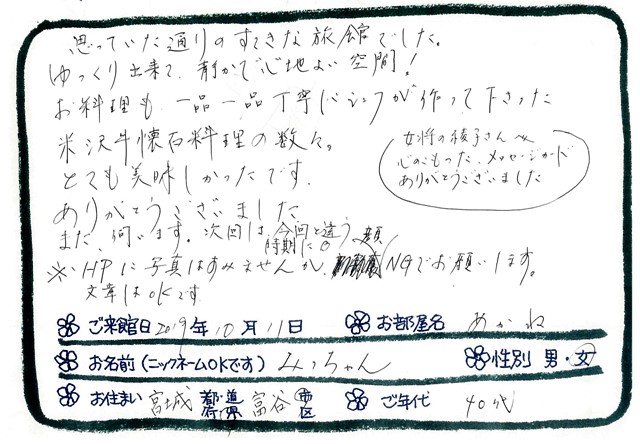 思っていた通りのすてきな旅館でした。
ゆっくり出来て、静かで心地よい空間!
お料理も一品一品丁寧にシェフが作って下さった
米沢牛懐石料理の数々。
とても美味しかったです。
ありがとうございました
女将の綾子さんへ
心のこもった、メッセージカード
ありがとうございました
また、伺います。次回は、今回と違う
時期に
※HPに写真はすみませんが 顔NGでお願いします。
文章はOKです
ご来館日 2019年10月11日 お部屋名 あかね
お名前(ニックネームOKです) みっちゃん 性別 男・女
お住まい 宮城 都道府県 富谷 市区 ご年代 40代